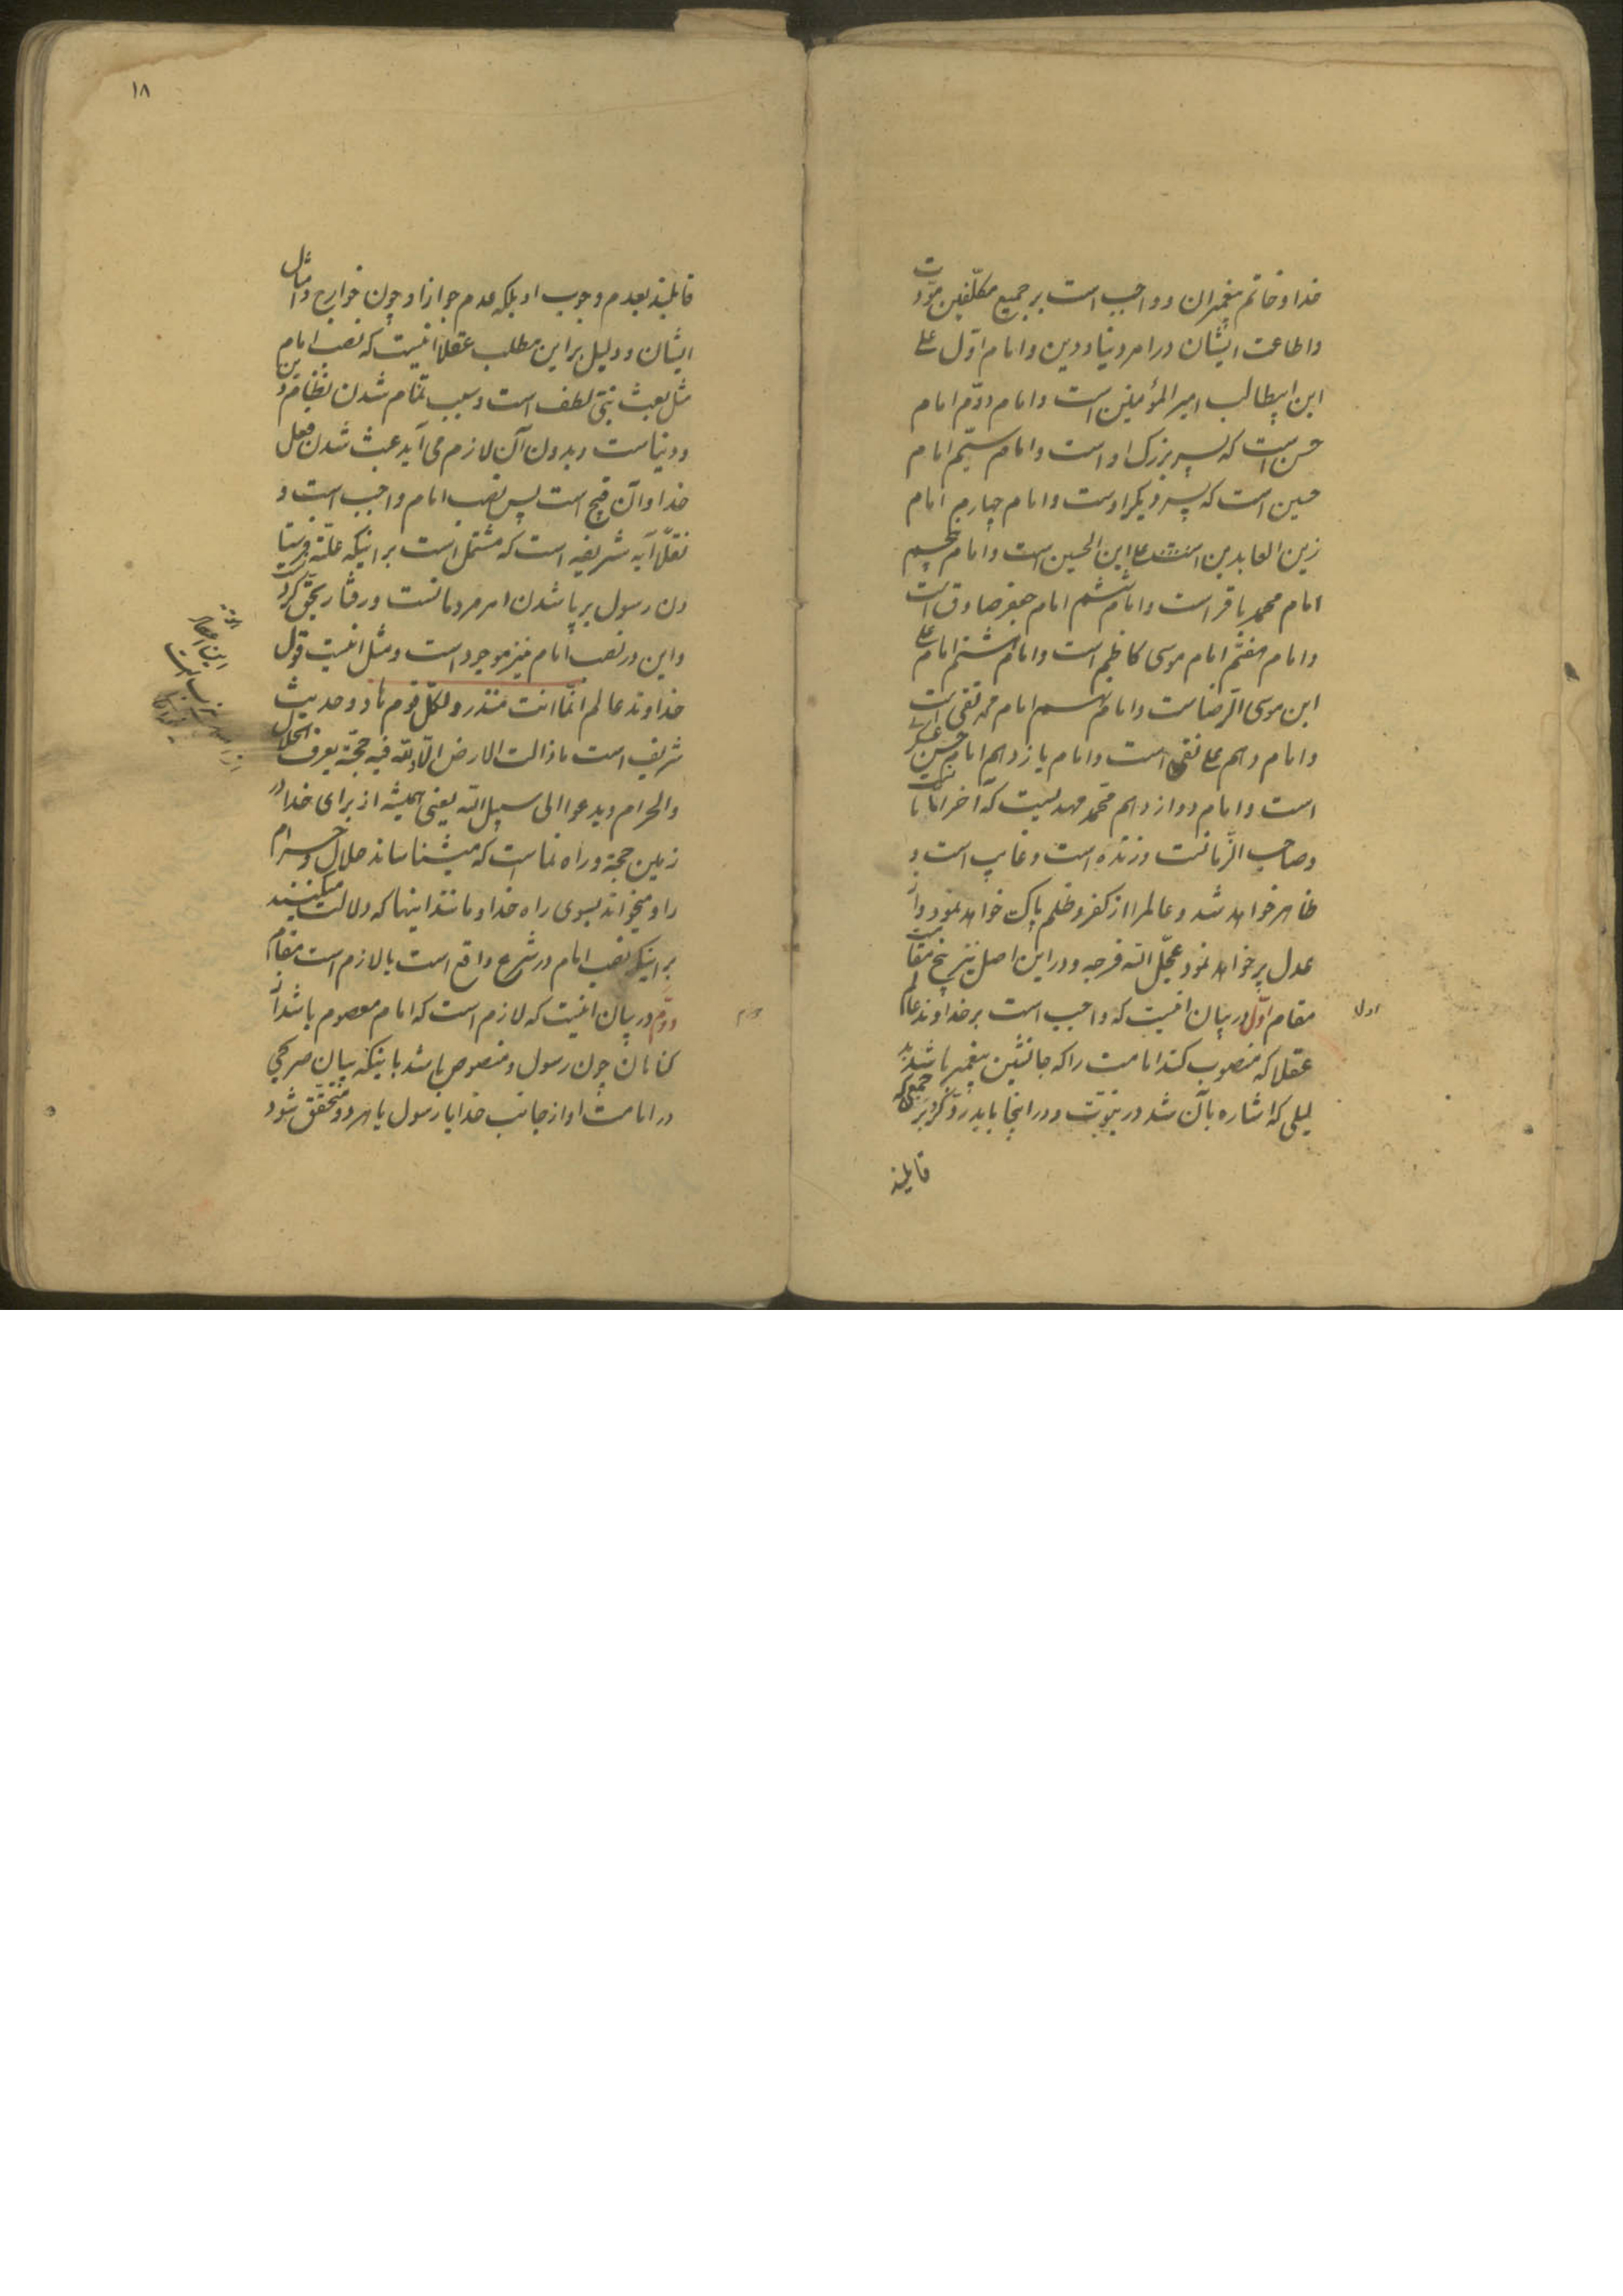 خدا و خاتم پیغمبران و واجب است بر جمیع مکلّفین مودّت
و اطاعت ایشان در امر دنیا و دین و امام اوّل علی
ابن ابیطالب امیر المؤمنین است و امام دوّم امام
حسن است که پسر بزرک او است و امام سیّم امام
حسین است که پسر دیکر اوست و امام چهارم امام
زین العابدین علی ابن الحسین است و امام پنجم
امام محمد باقر است و امام ششم امام جعفر صادق است
و امام هفتم امام موسی کاظم است و امام هشتم امام علی
ابن موسی الرّضاست و امام نهم امام محمد تقی است
و امام دهم علی نقی است و امام یازدهم امام حسن عسکری
است و امام دوازدهم محمّد مهدیست که آخر امامانست
و صاحب الزّمانست و زنده است و غایب است و
ظاهر خواهد شد و عالم را از کفر و ظلم پاک خواهد نمود و از
عدل پر خواهد نمود عجّل الله فرجه و در این اصل نیز پنج مقامست
مقام اوّل در بیان اینست که واجب است بر خداوند عالم
عقلا که منصوب کند امامت را که جانشین پیغمبر باشد بد
لیلی که اشاره بآن شد در نبوّت و در اینجا باید ردّ کرد بر جمعی که
قایلند
اول
۱۸
قایلند بعدم وجوب او بلکه عدم جواز او چون خوارج و امثال
ایشان و دلیل بر این مطلب عقلاً اینست که نصب امام
مثل بعث نبیّ لطف است و سبب تمام شدن نظام دین
و دنیاست و بدون آن لازم می آید عبث شدن فعل
خدا و آن قبیح است پس نصب امام واجب است و
نقلاً آیه شریفه است که مشتمل است بر اینکه علّة فرستا
دن رسول بر پا شدن امر مردمانست و رفتار بحق کردن
و این در نصب امام نیز موجود است و مثل اینست قول
خداوند عالم انّما انت منذر و لکلّ قوم هاد و حدیث
شریف است ما زالت الارض الّا و لله فیه حجّة یعرف الحلال
و الحرام و یدعوا الی سبیل الله یعنی همیشه از برای خدا در
زمین حجة و راه نما است که میشناساند حلال و حرام
را و میخواند بسوی راه خدا و مانند اینها که دلالت میکنند
بر اینکه نصب امام در شرع واقع است یا لازم است مقام
دوّم در بیان اینست که لازم است که امام معصوم باشد از
کناهان چون رسول و منصوص باشد باینکه بیان صریحی
در امامت او از جانب خدا یا رسول یا هر دو متحقّق شود
دوم